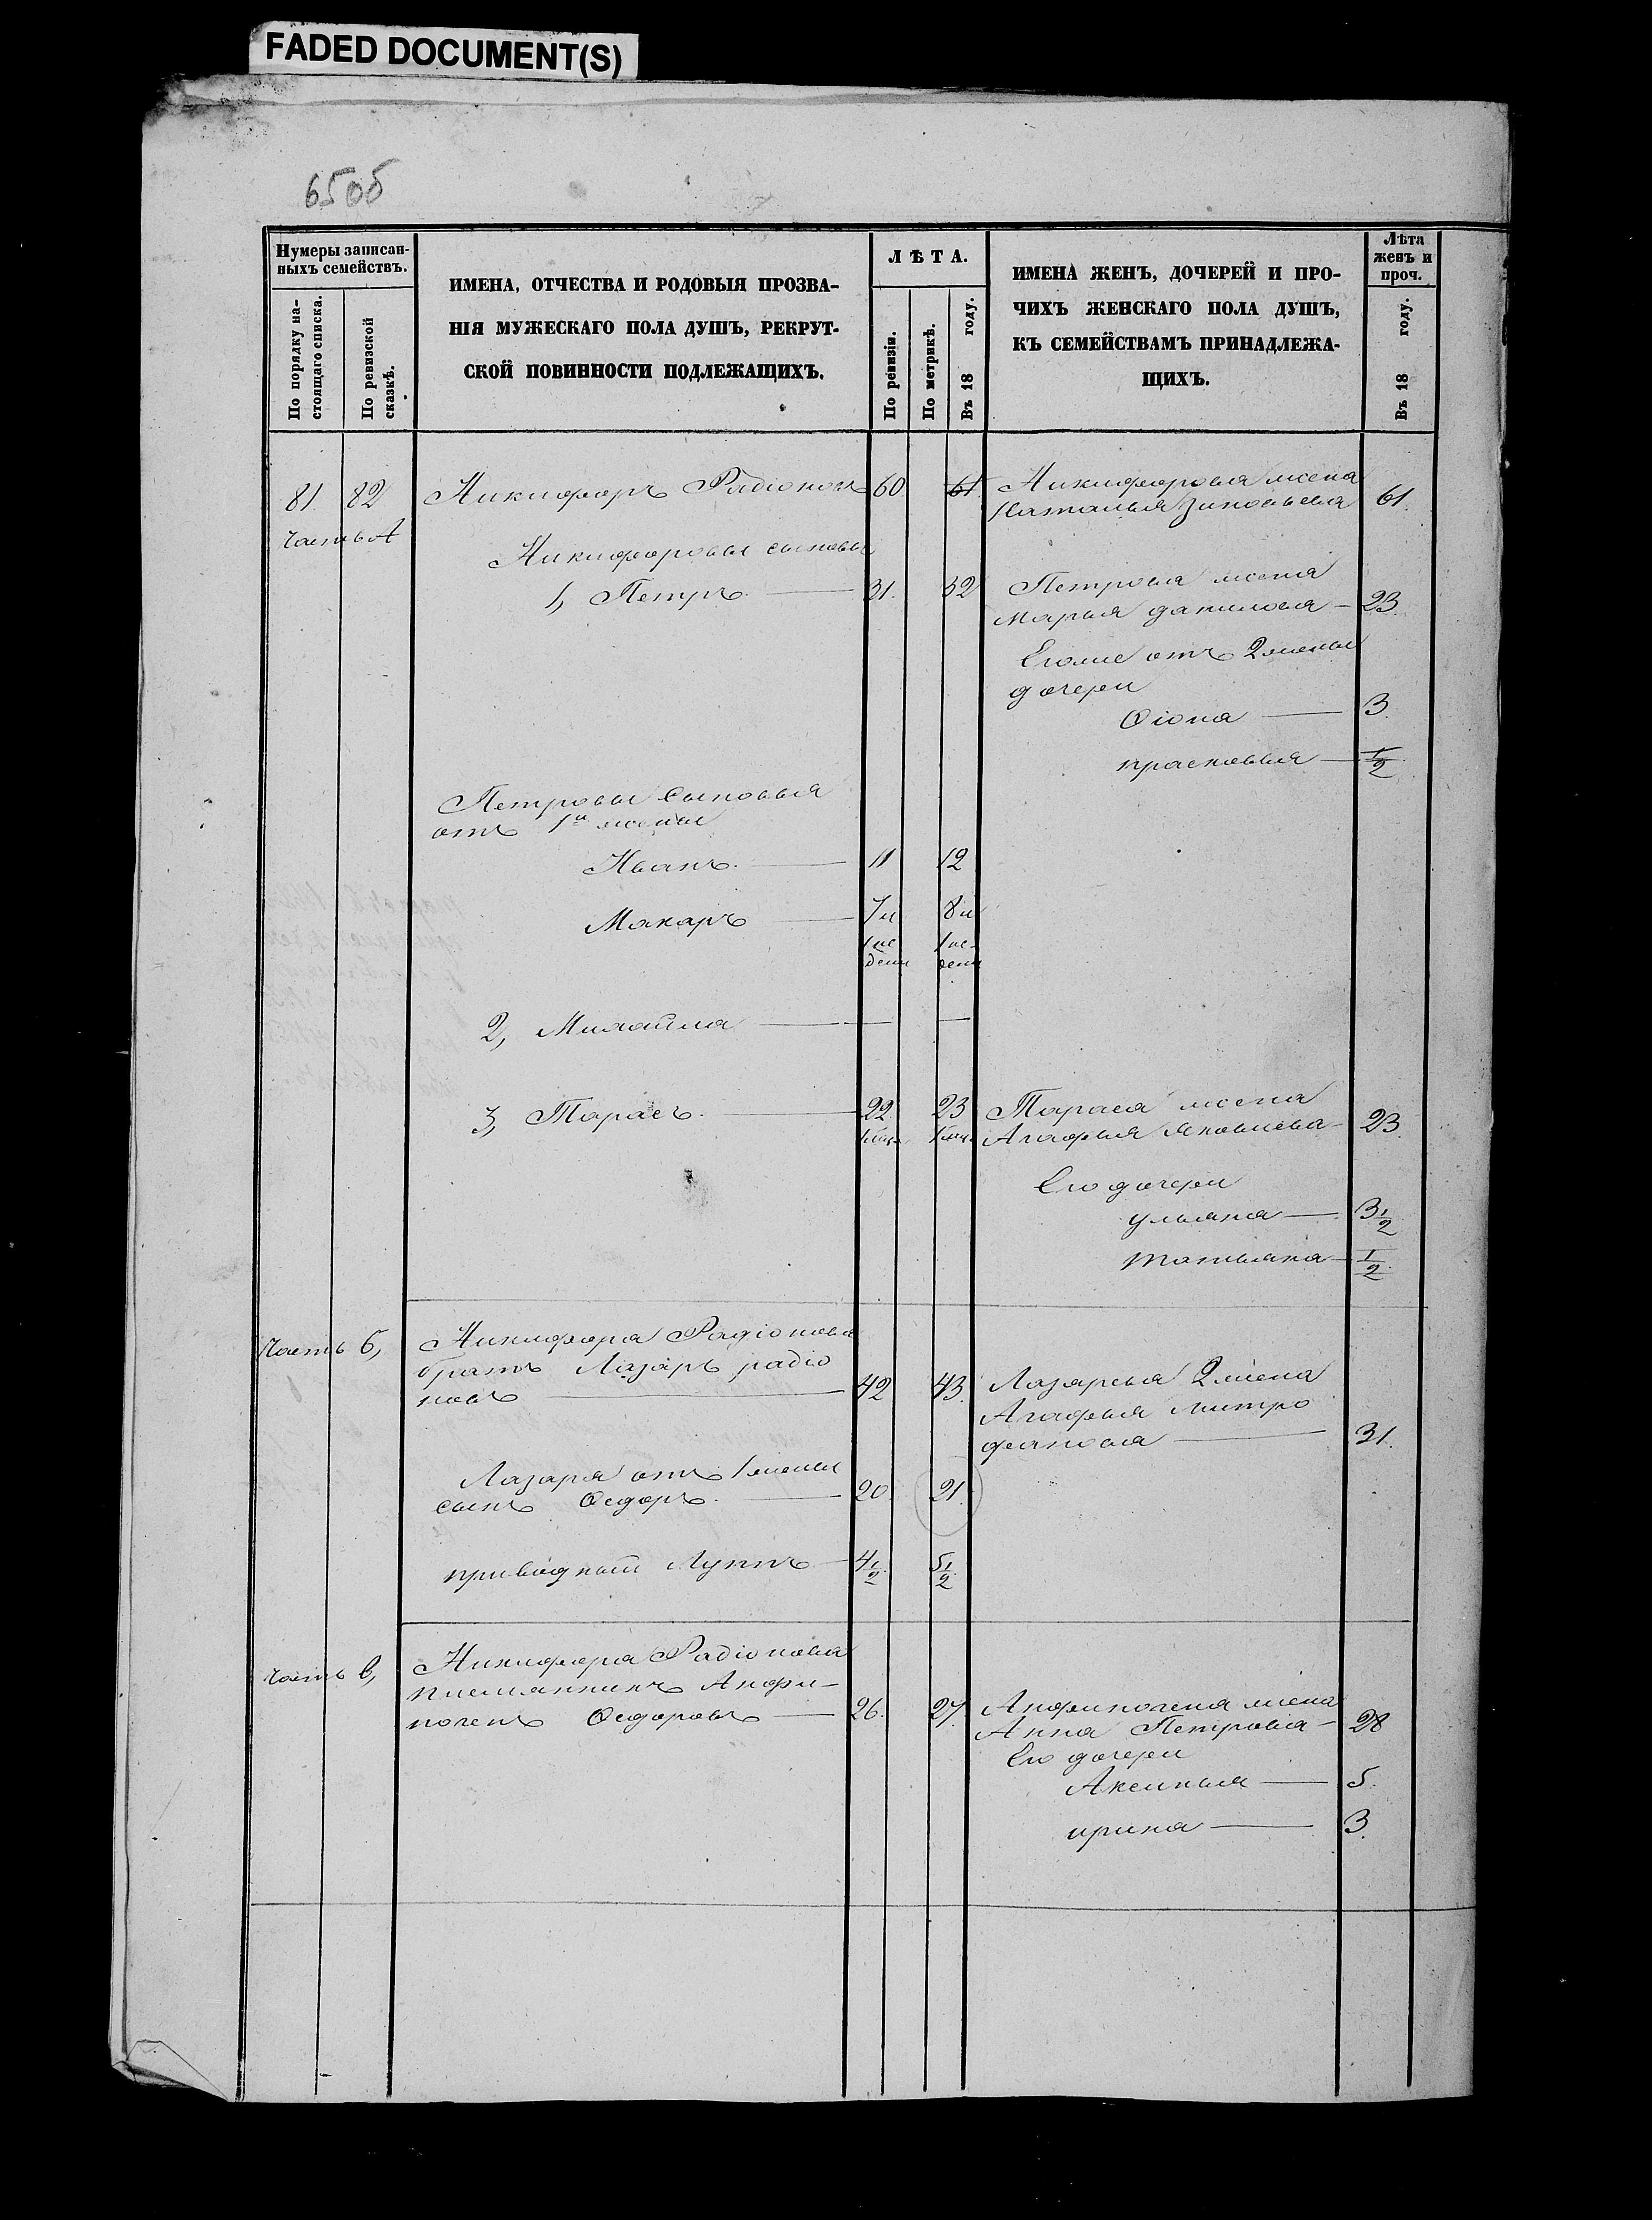 FADED DOCUMENT(S)
65об
Нумеры записан-
ныхъ семействъ.
По порядку на-
стоящаго списка.
По ревизской
сказкѣ.
ИМЕНА, ОТЧЕСТВА И РОДОВЫЯ ПРОЗВА-
НІЯ МУЖЕСКАГО ПОЛА ДУШЪ, РЕКРУТ-
СКОЙ ПОВИННОСТИ ПОДЛЕЖАЩИХЪ.
ЛѢТА.
По ревизіи.
По метрикѣ.
Въ 18 году.
ИМЕНА ЖЕНЪ, ДОЧЕРЕЙ И ПРО-
ЧИХЪ ЖЕНСКАГО ПОЛА ДУШЪ,
КЪ СЕМЕЙСТВАМЪ ПРИНАДЛЕЖА-
ЩИХЪ.
Лѣта
женъ и
проч.
Въ 18 году.
81 82 Никифоръ Радіоновъ 60 61 Никифорова жена
Наталья Зиновьева 61.
часть А
Никифоровы сыновья
1, Петръ 31. 32 Петрова жена
Марья данилова 23.
Егоже отъ 2 жены
дочери
Ѳіона 3.
прасковья 1/2
Петровы Сыновья
отъ 1й жены
Иванъ. 11 12
Макаръ 7и 8и
2, Михайла
3, Тарасъ. 22 23 Тараса жена
Агафья Яковлева 23.
Его дочери
ульяна 3 1/2
татьяна 1/2
Часть б, Никифора Радіонова
братъ Лазарь радіо
новъ 42 43. Лазарева 2 жена
Агафья митро
фанова 31.
Лазаря отъ 1 жены
сынъ Ѳедоръ. 20. 21.
приводный Луппъ 4 1/2 5 1/2
часть в, Никифора Радіонова
племянникъ Анфи-
ногенъ Ѳедоровъ 26. 27. Анфиногена жена
Анна Петрова 28
Его дочери
Аксинья 5.
ирина 3.